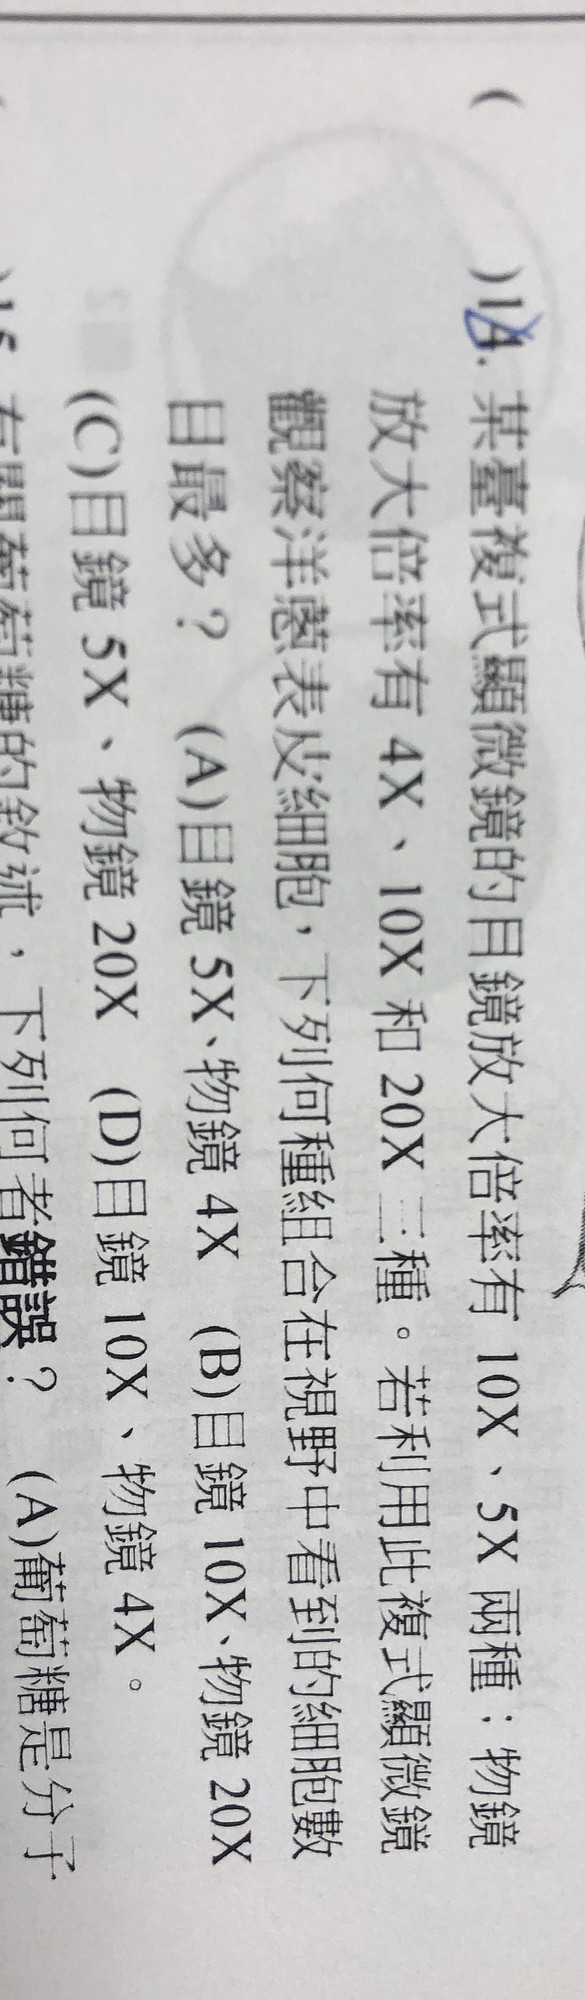 (　　)14. 某臺複式顯微鏡的目鏡放大倍率有 10X、5X 兩種；物鏡
放大倍率有 4X、10X 和 20X 三種。若利用此複式顯微鏡
觀察洋蔥表皮細胞，下列何種組合在視野中看到的細胞數
目最多？　(A)目鏡 5X、物鏡 4X　(B)目鏡 10X、物鏡 20X
(C)目鏡 5X、物鏡 20X　(D)目鏡 10X、物鏡 4X。
)15. 有關葡萄糖的敘述，下列何者錯誤？　(A)葡萄糖是分子